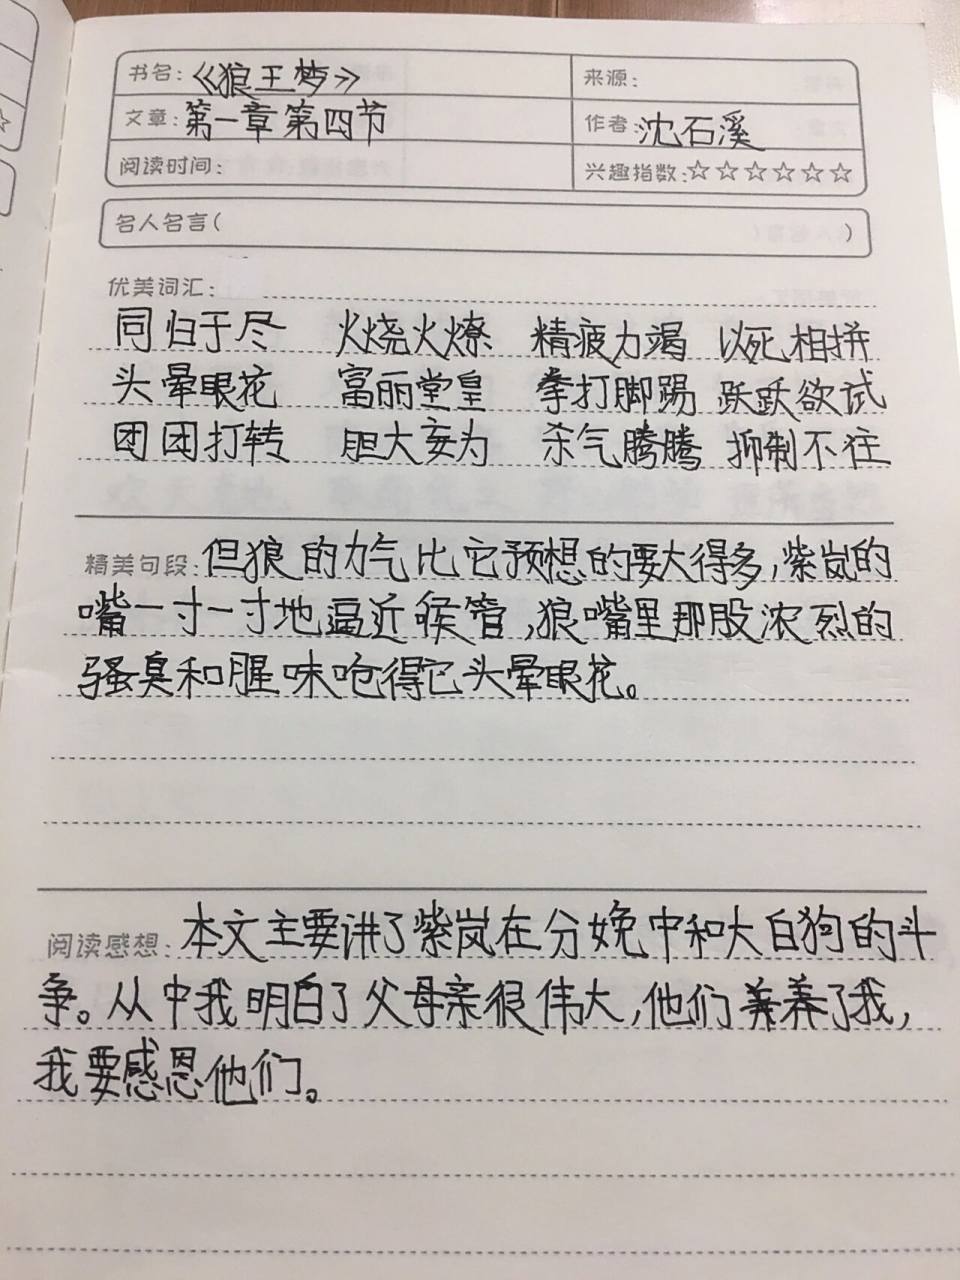 书名:《狼王梦》 来源:
文章:第一章第四节 作者:沈石溪
阅读时间: 兴趣指数:☆☆☆☆☆☆
名人名言( )
优美词汇:
同归于尽 火烧火燎 精疲力竭 以死相拼
头晕眼花 富丽堂皇 拳打脚踢 跃跃欲试
团团打转 胆大妄为 杀气腾腾 抑制不住
精美句段:但狼的力气比它预想的要大得多,紫岚的
嘴一寸一寸地逼近喉管,狼嘴里那股浓烈的
骚臭和腥味呛得它头晕眼花。
阅读感想:本文主要讲了紫岚在分娩中和大白狗的斗
争。从中我明白了父母亲很伟大,他们养了我,
我要感恩他们。